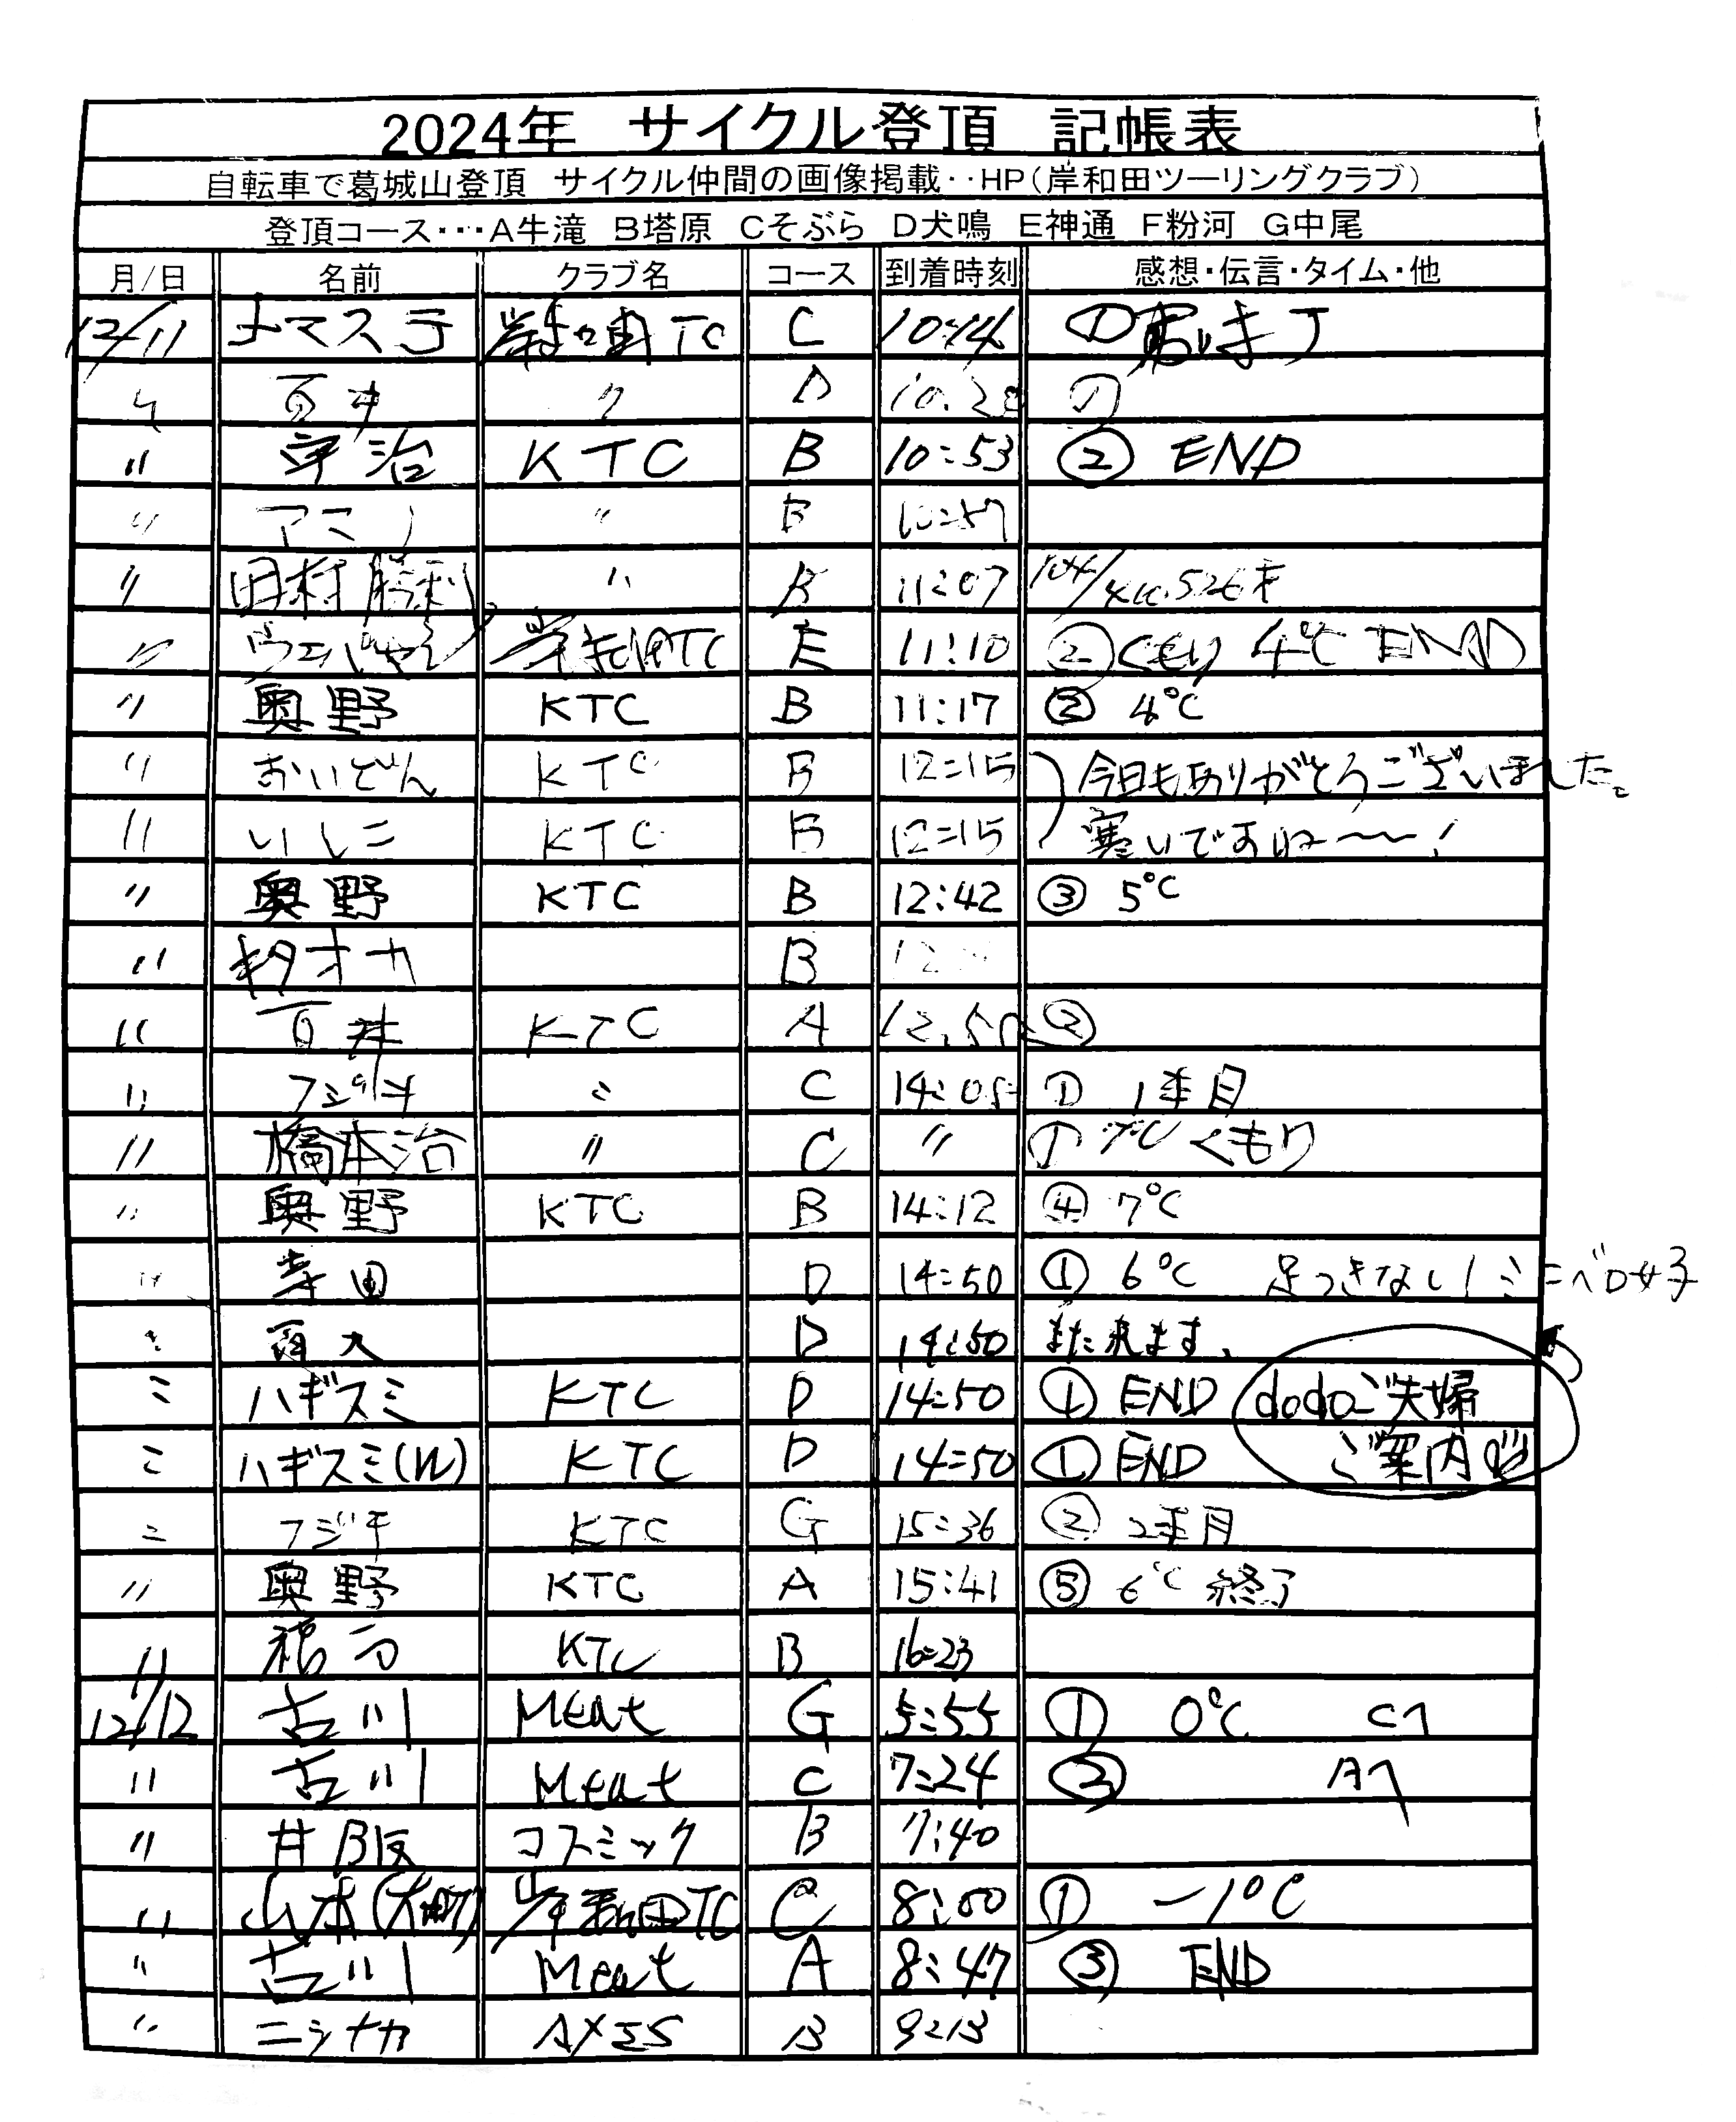 2024年 サイクル登頂 記帳表
自転車で葛城山登頂 サイクル仲間の画像掲載‥HP(岸和田ツーリングクラブ)
登頂コース・・・A牛滝 B塔原 Cそぶら D犬鳴 E神通 F粉河 G中尾
月/日 名前 クラブ名 コース 到着時刻 感想・伝言・タイム・他
12/11 岸和田TC C 10:14 ①
〃 百井 〃 D ①
〃 宇治 KTC B 10:53 ② END
〃 アマノ 〃 B 10:57
〃 田村勝利 〃 B 11:07
〃 ウエバやん 岸和田TC E 11:10 ② くもり 4℃ END
〃 奥野 KTC B 11:17 ② 4℃
〃 おいどん KTC B 12:15 今日もありがとうございました。
〃 いしこ KTC B 12:15 寒いですね〜〜!
〃 奥野 KTC B 12:42 ③ 5℃
〃 キタオカ B
〃 百井 KTC A 12.50 ②
〃 フジタキ 〃 C 14:05 ① 1本目
〃 橋本治 〃 C 〃 ① くもり
〃 奥野 KTC B 14:12 ④ 7℃
〃 寺田 D 14:50 ① 6℃ 足つきなし!ミニベロ女子
〃 D 14:50 また来ます。
〃 ハギスミ KTC D 14:50 ① END dodoご夫婦
〃 ハギスミ(W) KTC D 14:50 ① END ご案内
〃 KTC G 15:36 ② 2本目
〃 奥野 KTC A 15:41 ⑤ 6℃ 終了
〃 KTC B 16:23
12/12 古川 Meat G 5:55 ① 0℃ Cへ
〃 古川 Meat C 7:24 ② Aへ
〃 井阪 コスミック B 7:40
〃 山本(大町) 岸和田TC C 8:00 ① -1℃
〃 古川 Meat A 8:47 ③ END
〃 ニシナカ B 9:13